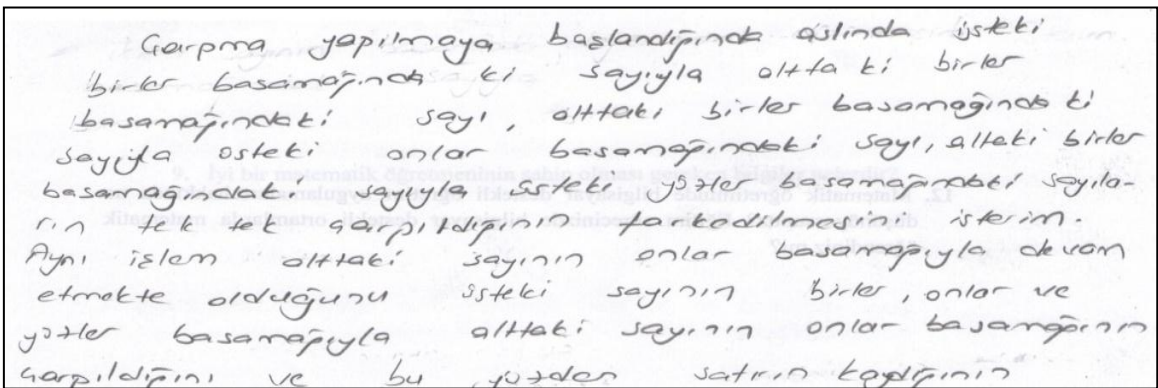 Çarpma yapılmaya başlandığında aslında üsteki
birler basamağında ki sayıyla altta ki birler
basamağındaki sayı, alttaki birler basamağında ki
sayıyla üsteki onlar basamağındaki sayı, alteki birler
basamağındaki sayıyla üsteki yüzler basamağındaki sayıla-
rın tek tek çarpıldığının farkedilmesini isterim.
Aynı işlem alttaki sayının onlar basamağıyla devam
etmekte olduğunu üsteki sayının birler, onlar ve
yüzler basamağıyla alttaki sayının onlar basamağının
çarpıldığını ve bu yüzden satırın kaydığının